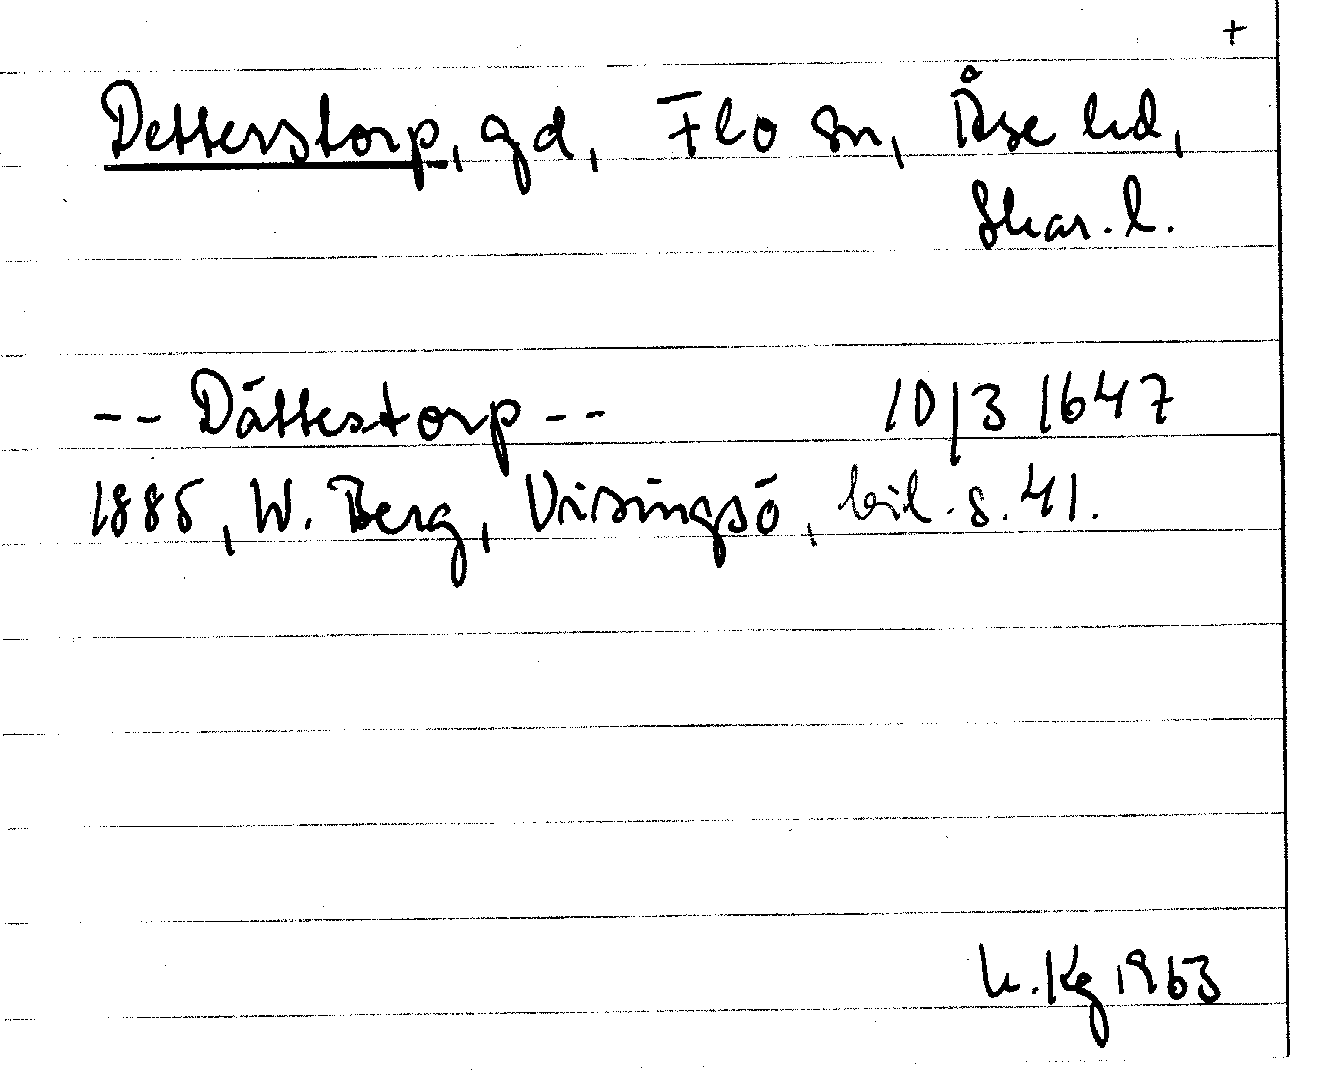 +
Detterstorp, gd, Flo sn, Åse hd,
Skar. l.
-- Dättestorp -- 10/3 1647
1885, W. Berg, Visingsö, bil. s. 41.
K. Kg 1963